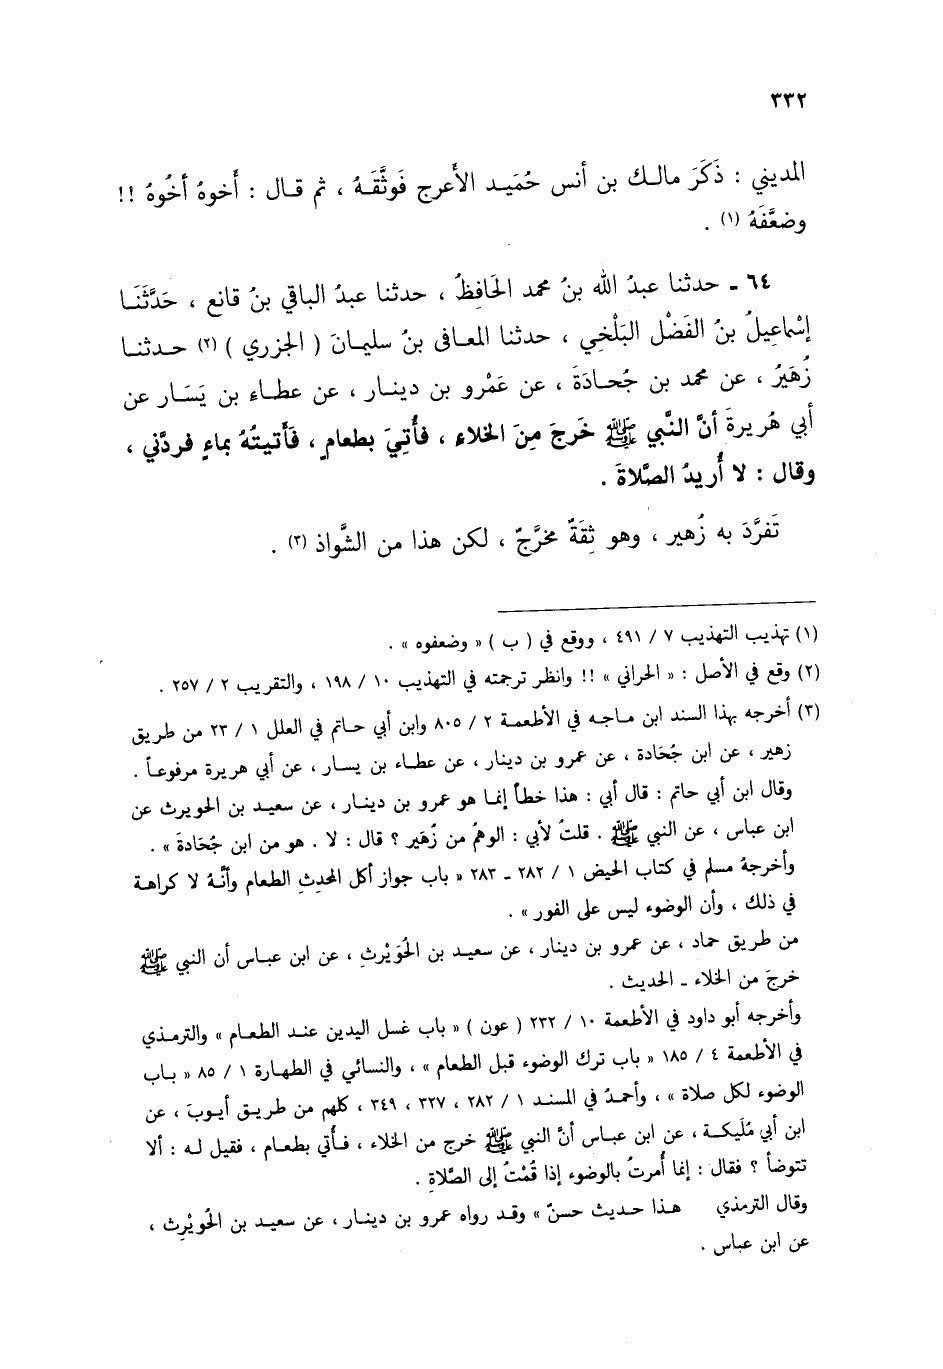 ٣٣٢
المديني : ذَكَرَ مالك بن أنس حُمَيد الأَعرج فَوثَّقَهُ ، ثم قال : أَخوهُ أخُوهُ !!
وضعَّفَهُ (١) .
٦٤ ـ حدثنا عبدُ الله بنُ محمد الحَافِظُ ، حدثنا عبدُ الباقي بنُ قانع ، حَدَّثَنَا
إسْماعِيلُ بنُ الفَضْل البَلْخي ، حدثنا المعافى بنُ سليمانَ ( الجزري ) (٢) حدثنا
زُهَيرُ ، عن محمد بن جُحادَةَ ، عن عَمْرو بن دينار ، عن عطاء بن يَسَار عن
أبي هُريرةَ أنَّ النَّبي ﷺ خَرجَ مِنَ الخلاء ، فأُتِيَ بطعامٍ ، فَأَتيتُهُ بماءٍ فردَّني ،
وقال : لا أُريدُ الصَّلاةَ .
تَفرَّدَ به زُهير ، وهو ثِقَةٌ مخرَّجٌ ، لكن هذا من الشَّواذ (٣) .
(١) تهذيب التهذيب ٧ / ٤٩١ ، ووقع في ( ب ) « وضعفوه » .
(٢) وقع في الأصل : « الحراني » !! وانظر ترجمته في التهذيب ١٠ / ١٩٨ ، والتقريب ٢ / ٢٥٧ .
(٣) أخرجه بهذا السند ابن ماجه في الأطعمة ٢ / ٨٠٥ وابن أبي حاتم في العلل ١ / ٢٣ من طريق
زهير ، عن ابن جُحَادة ، عن عمرو بن دينار ، عن عطاء بن يسار ، عن أبي هريرة مرفوعاً .
وقال ابن أبي حاتم : قال أبي : هذا خطأ إنما هو عمرو بن دينار ، عن سعيد بن الحويرث عن
ابن عباس ، عن النبي ﷺ . قلتُ لأبي : الوهمُ من زُهَير ؟ قال : لا . هو من ابن جُحَادةَ » .
وأخرجهُ مسلم في كتاب الحيض ١ / ٢٨٢ ـ ٢٨٣ « باب جواز أكل المحدِثِ الطعام وأنَّهُ لا كراهة
في ذلك ، وأن الوضوء ليس على الفور » .
من طريق حماد ، عن عمرو بن دينار ، عن سعيد بن الحُوَيْرثِ ، عن ابن عباس أن النبي ﷺ
خرجَ من الخلاء ـ الحديث .
وأخرجه أبو داود في الأطعمة ١٠ / ٢٣٢ ( عون ) « باب غسل اليدين عند الطعام » والترمذي
في الأطعمة ٤ / ١٨٥ « باب ترك الوضوء قبل الطعام » ، والنسائي في الطهارة ١ / ٨٥ « باب
الوضوء لكل صلاة » ، وأحمدُ في المسند ١ / ٢٨٢ ، ٣٢٧ ، ٣٤٩ ، كلهم من طريق أيوبَ ، عن
ابن أبي مُلَيكة ، عن ابن عباس أنَّ النبي ﷺ خرج من الخلاء ، فأُتي بطعام ، فقيل له : ألا
تتوضأ ؟ فقال : إنما أُمرتُ بالوضوء إذا قُمْتُ إلى الصَّلاةِ .
وقال الترمذي هذا حديث حسنٌ » وقد رواه عمرو بن دينار ، عن سعيد بن الحُويْرِث ،
عن ابن عباس .